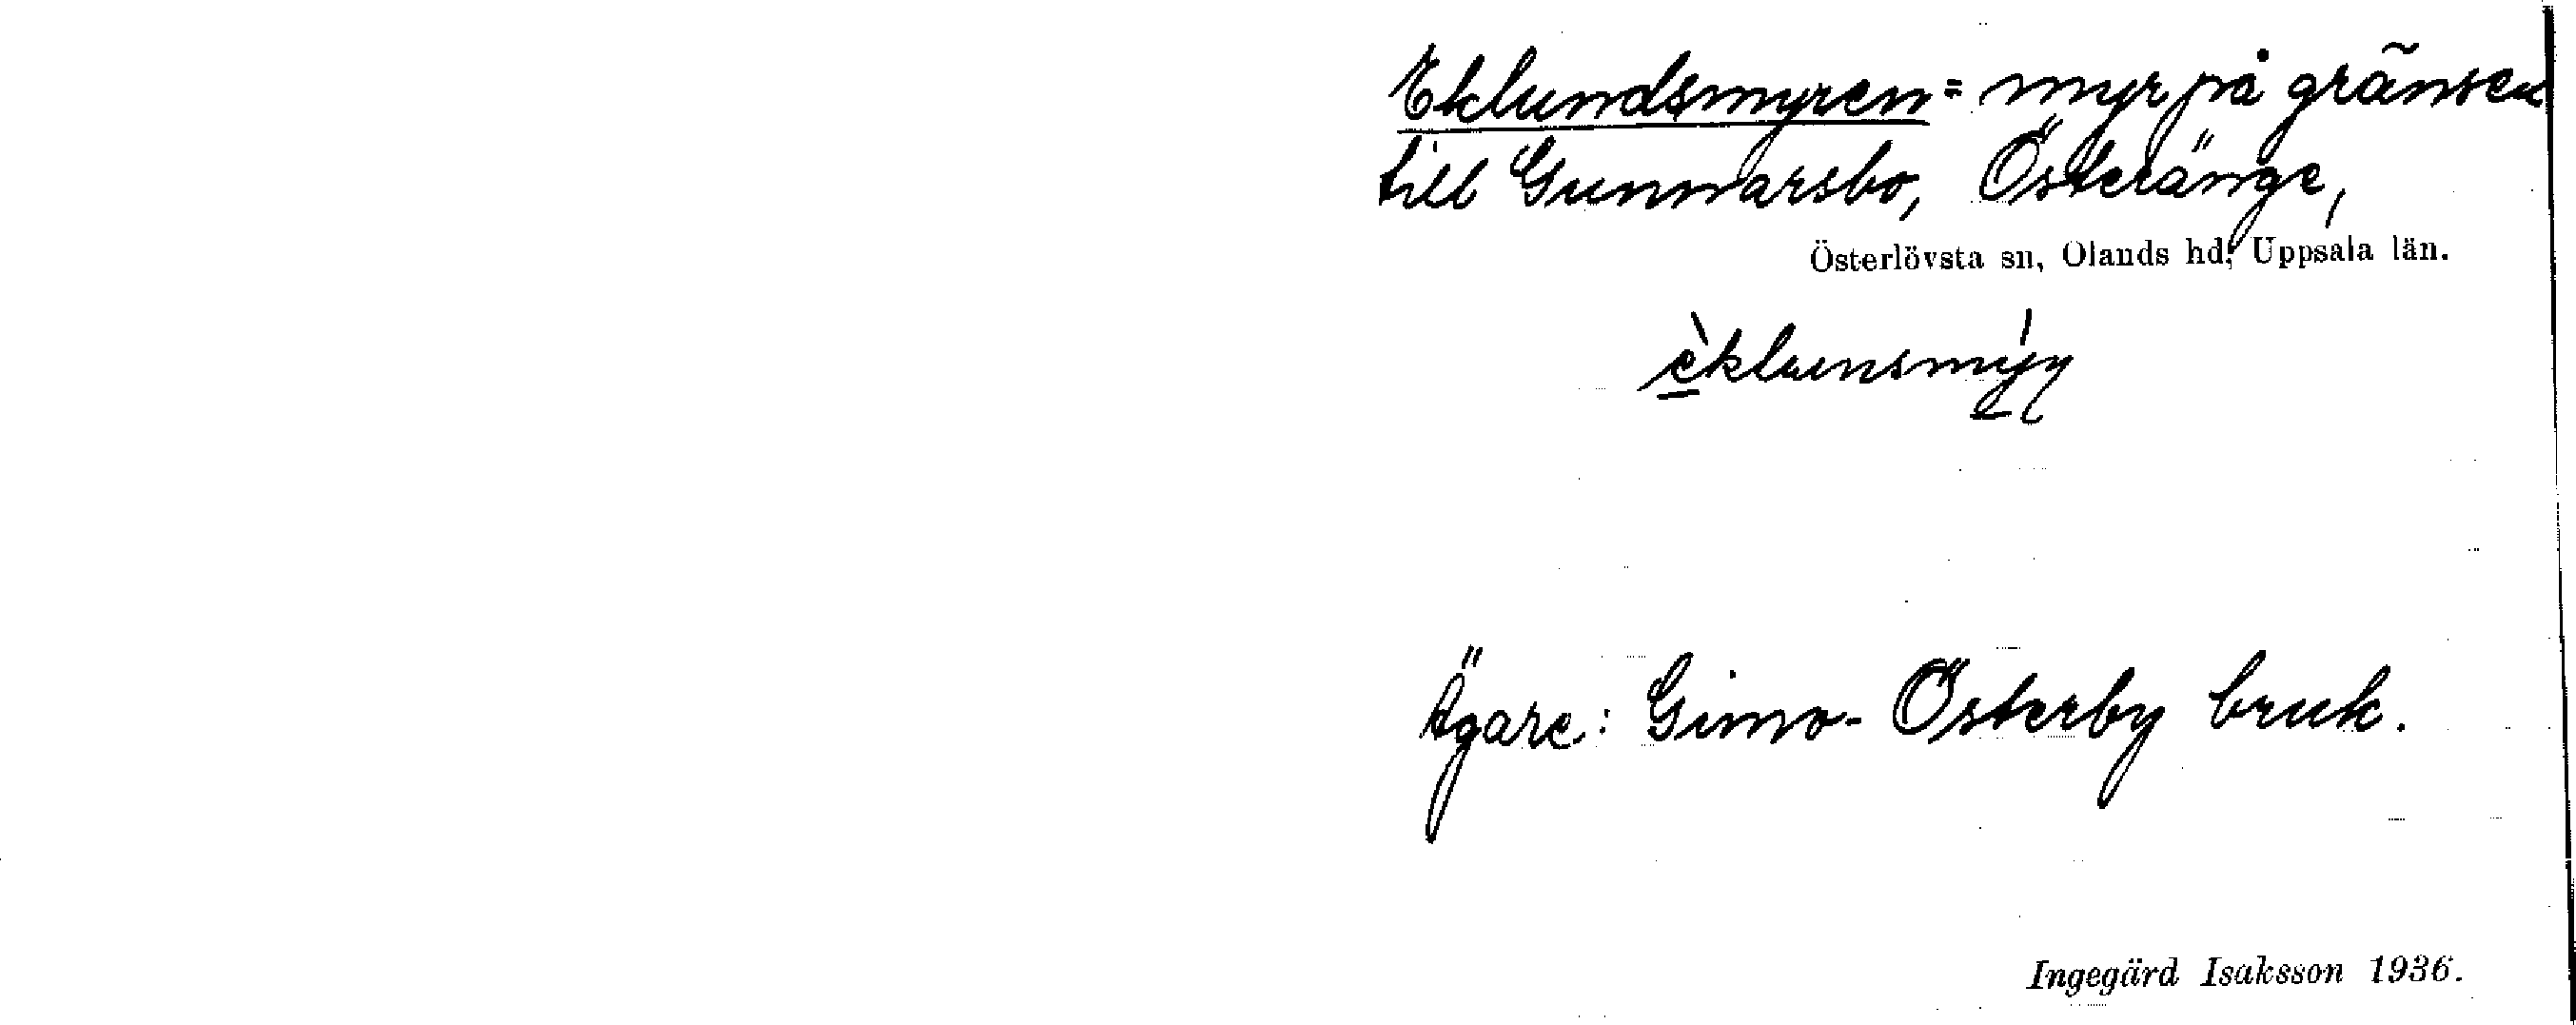 Eklundsmyren = myr på gränsen
till Gunnarsbo, Österänge,
Österlövsta sn, Olands hd, Uppsala län.
Ägare: Gimo-Österby bruk.
Ingegärd Isaksson 1936.